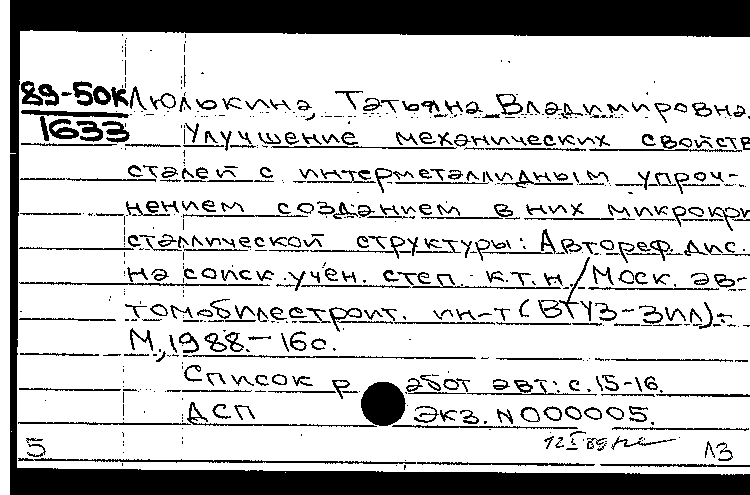 89-50К Люлькина, Татьяна Владимировна.
1633 Улучшение механических свойств
сталей с интерметаллидным упроч-
нением созданием в них микрокри
сталлической структуры: Автореф. дис.
на соиск. учён. степ. к.т.н./Моск. ав-
томобилестроит. ин-т (ВТУЗ-ЗИЛ).-
М., 1988.- 16с.
Список работ авт.: с. 15-16.
ДСП Экз. N000005.
5 12 I 89 13